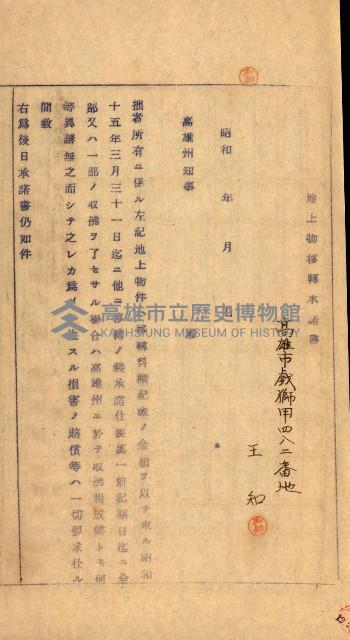 地上物移轉承諾書
高雄市戲獅甲四八二番地
王 和
昭和 年 月 日
高雄州知事 殿
拙者所有ニ係ル左記地上物件移轉料欄記載ノ金額ヲ以テ來ル昭和
十五年三月三十一日迄ニ他ニ移轉ノ義承諾仕候萬一前記期日迄ニ全
部又ハ一部ノ收拂ヲ了セサル場合ハ高雄州ニ於テ收拂相成候トモ何
等異議無之而シテ之レカ爲メ生スル損害ノ賠償等ハ一切要求仕ル
間敷
右爲後日承諾書仍如件
高雄市立歷史博物館
KAOHSIUNG MUSEUM OF HISTORY